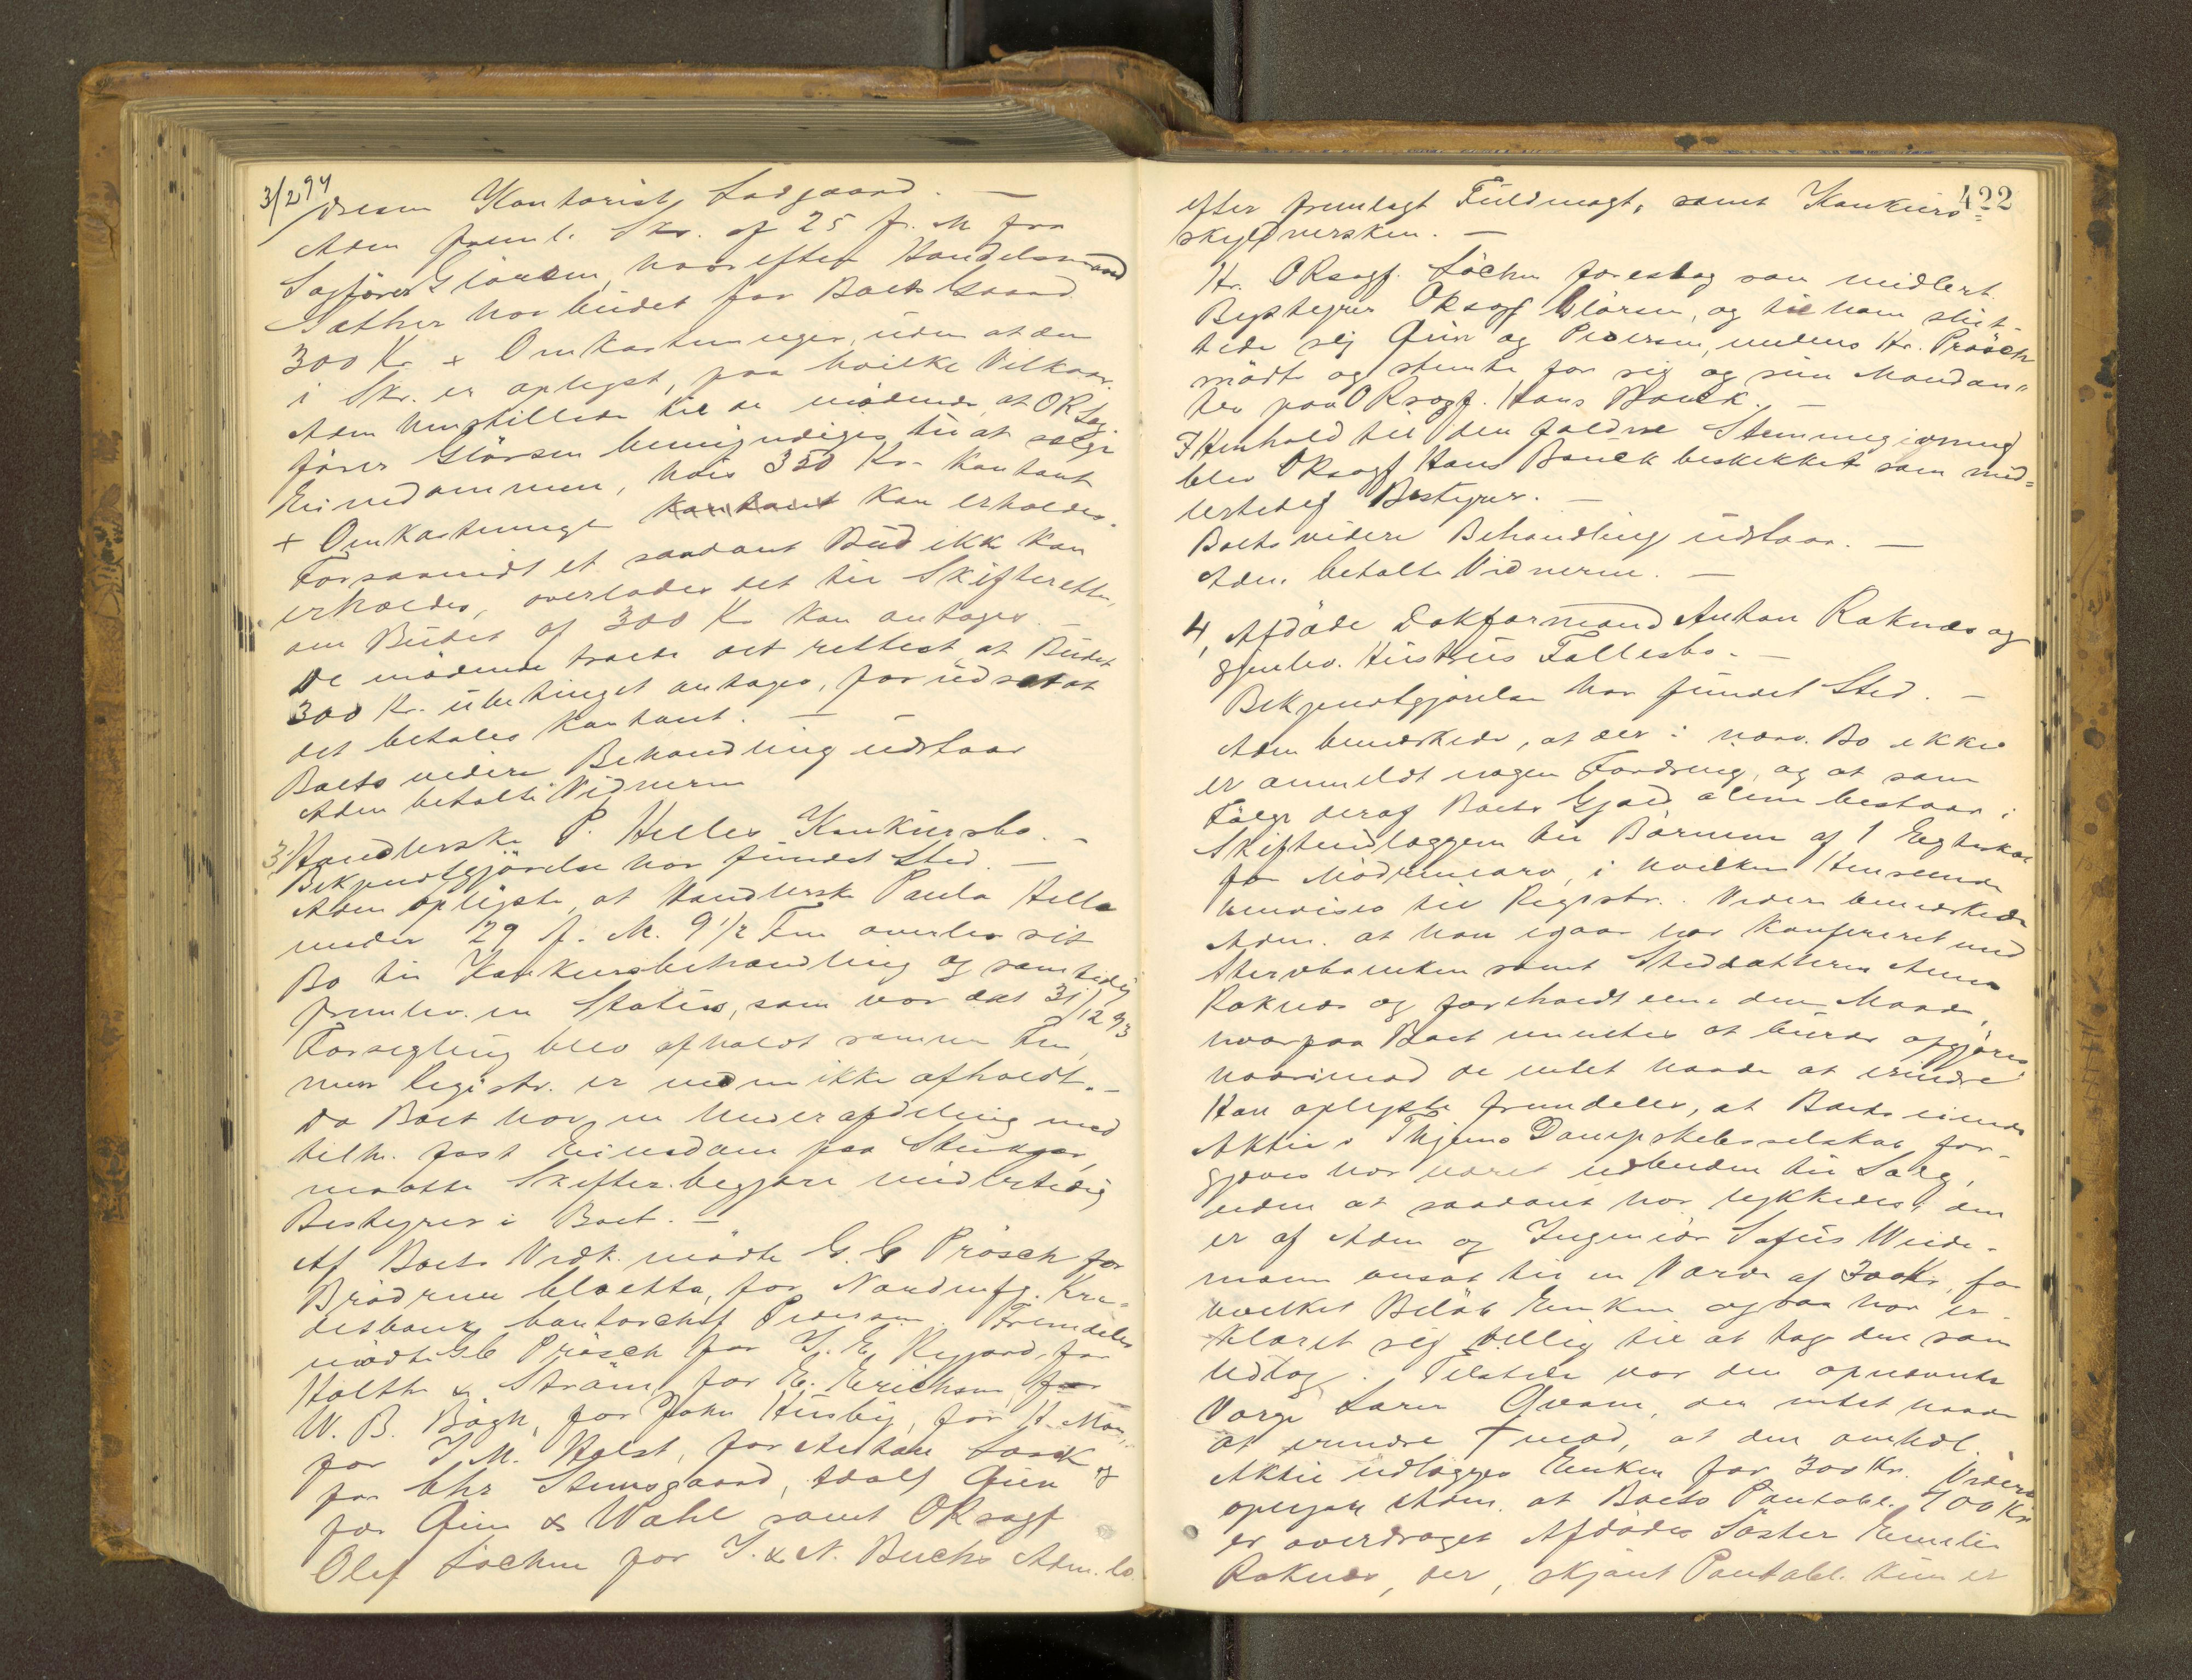 3/2 94
Kontorist Ladgaard. —
Adm freml. Skr. af 25 f. M fra
Sagförer Glörsen, hvorefter Handelsmand
Sæther har budet for Boets Gaard
300 Kr + Omkostninger, uden at den
i Skr. er oplyst, paa hvilke Vilkaar.
Adm henstillede til de mødende, at ORsag-
fører Glörsen bemyndiges til at sælge
Eiendommen, hvis 350 Kr. kontant
+ Omkostninger kontant kan erholdes.
Forsaavidt et saadant Bud ikke kan
erholdes, overlades det til Skifteretten,
om Budet af 300 Kr kan antages. —
De mødende troede det rettest at Budet
300 Kr. ubetinget antages, forudsat at
det betales kontant. —
Boets videre Behandling udstaar
Adm betalte Vidnerne
3, Handlerske P. Helles Konkursbo. —
Bekjendtgjörelse har fundet Sted. —
Adm oplyste, at Handlerske Paula Helle
under 29 f. M. 9 1/2 Fm overlev sit
Bo til Konkursbehandling og samtidig
fremlev. en Status, som var dat 31/12 93
Forsegling blev afholdt samme Fm,
men Registr. er endnu ikke afholdt. —
Da Boet har en Underafdeling med
tilh. fast Eiendom paa Stenkjær,
maatte Skifter. begjære midlertidig
Bestyrer i Boet. —
Af Boets Vedk. mødte G. C Prösch for
Brödrene Cloetta, for Nordenfj. Kre-
ditbank Contorchef Pedersen. Fremdeles
mødte GC Prösch for J. E. Rygaard, for
Holth & Ström, for E. Erichsen, for
W. B. Bögh, for John Husby, for H. Moe,
for J. M. Holst, for Anton
for Chr Stensgaard, Adolf Øien og
for Øien & Wahl samt ORsagf
Olaf Löchen for J. & N. Buchs Adm. Co.
422
efter fremlagt Fuldmagt, samt Konkurs=
skyldnersken. —
Hr. ORsagf. Löchen foreslog som midlert.
Bestyrer ORsagf Glörsen, og til ham slut-
tede sig Øien og Pedersen, medens Hr. Prösch
mödte og stemte for sig og sine Mandan-
ter paa ORsagf. Hans Bauck. —
I Henhold til den faldne Stemmegivning
blev ORsagf Hans Bauck beskikket som mid=
lertidig Bestyrer. —
Boets videre Behandling udstaar. —
Adm. betalte Vidnerne. —
4, Afdöde Dokformand Anton Raknes og
gjenlev. Hustrus Fællesbo. —
Bekjendtgjörelse har fundet Sted. —
Adm bemærkede, at der i nærv. Bo ikke
er anmeldt nogen Fordring, og at som
Fölge deraf Boets Gjæld alene bestaar i
Skifteudlæggene til Börnene af 1 Egteskab
for Mödrenearv, i hvilken Henseende
henvises til Registr. Videre bemærkede
Adm. at han igaar har konfereret med
Stervboenken samt Steddatteren Anna
Raknes og foreholdt dem den Maade,
hvorpaa Boet menteles at burde opgjöres
hvorimod de intet havde at erindre
Han oplyste fremdeles, at Boets eiende
Aktie i Thjems Dampskibsselskab for-
gjæves har været udbuden til Salg,
uden at saadant har lykkedes; den
er af Adm og Ingeniör Sofus Weide-
mann ansat til en Værdi af 300 Kr, for
hvilket Belöb Enken ogsaa har er-
klæret sig villig til at tage den som
Udlæg. Tilstede var den opnævnte
Værge Lars Qvam, der intet havde
at erindre imod, at den omhdl.
Aktie udlægges Enken for 300 Kr. Videre
oplyste Adm. at Boets Pantobl. 400 Kr
er overdraget Afdödes Söster Emilie
Raknes, der, skjönt Pantobl. kun er